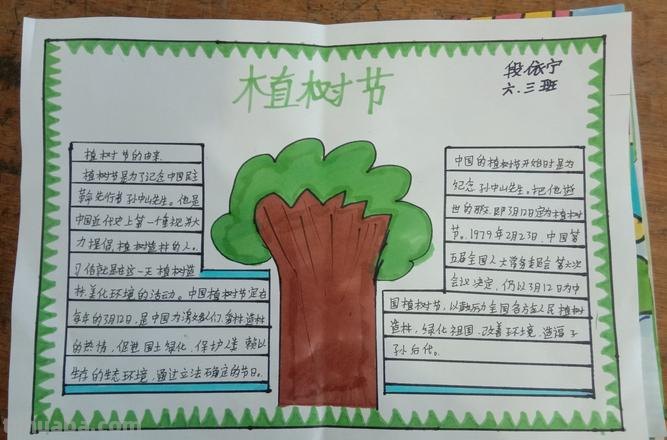 植树节
段依宁
六.三班
植树节的由来
植树节是为了纪念中国民主
革命先行者孙中山先生。他是
中国近代史上第一个重视并大
力提倡植树造林的人。
就是在这一天植树造
林,美化环境的活动。中国植树节定在
每年的3月12日,是中国为激发人们爱林造林
的热情,促进国土绿化,保护人类赖以
生存的生态环境,通过立法确定的节日。
中国的植树节开始时是为
纪念孙中山先生。把他逝
世的那天即3月12日定为植树
节。1979年2月23日,中国第
五届全国人大常务委员会第六次
会议决定,仍以3月12日为中
国植树节,以鼓励全国各族人民植树
造林,绿化祖国,改善环境,造福子
孙后代。